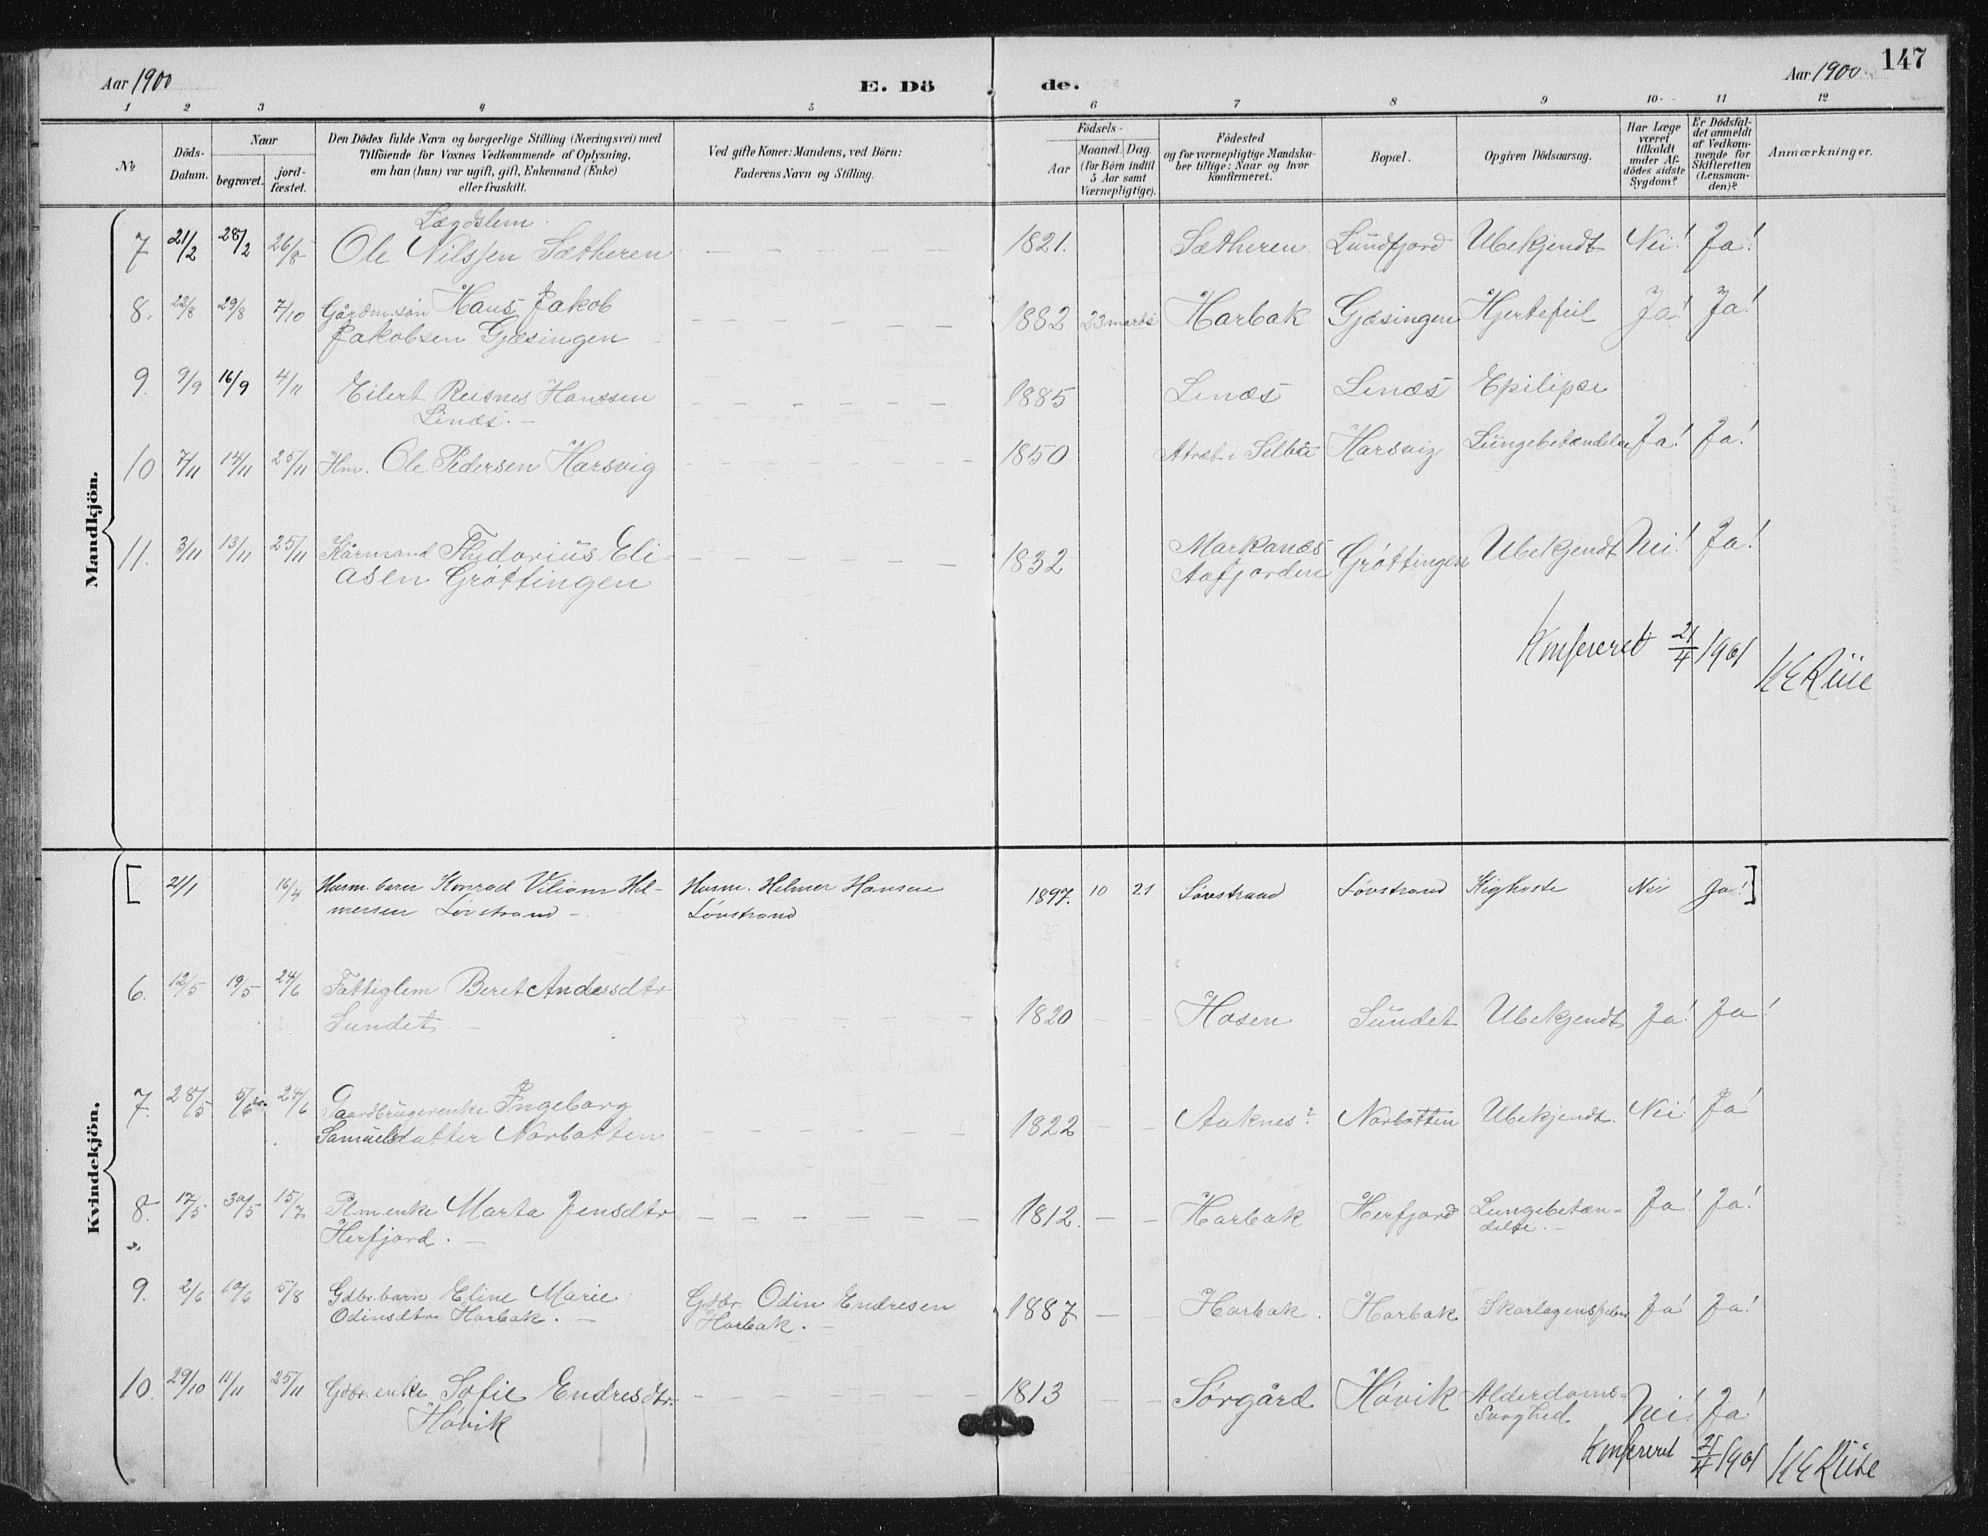 Aar 1900 E. Dö de. Aar 1900 147
1 2 3 4 5 6 7 8 9 10 11 12
№ Döds-Datum. Naar begravet. jordfæstet. Den Dödes fulde Navn og borgerlige Stilling (Næringsvei) med Tilföiende for Voxnes Vedkommende af Oplysning, om han (hun) var ugift, gift, Enkemand (Enke) eller fraskilt. Ved gifte Koner: Mandens, ved Börn: Faderens Navn og Stilling. Födsels- Aar Maaned. Dag. (for Börn indtil 5 Aar samt Værnepligtige). Födested og for værnepligtige Mandskaber tillige: Naar og hvor konfirmeret. Bopæl. Opgiven Dödsaarsag. Har Læge været tilkaldt under Afdödes sidste Sygdom? Er Dödsfaldet anmeldt af Vedkommende for Skifteretten (Lensmanden)? Anmærkninger.
Mandkjön.
Lægdslem
7 21/2 28/2 26/8 Ole Nilssen Sætheren — — 1821. Sætheren Lundfjord Ubekjendt Nei! Ja!
8. 22/8 29/8 7/10 Gårdm.søn Hans Jakob 1882 23 marts Harbak Gjæsingen Hjertefeil Ja! Ja!
Jakobsen Gjæsingen
9. 9/9 16/9 4/11 Eilert Reisnes Hanssen 1885 Linæs Linæs Epilipsi
Linæs. —
10 7/11 14/11 25/11 Hm. Ole Pedersen Harsvig 1850 Selbu Harsvig Lungebetændelse Ja! Ja!
11. 3/11 13/11 25/11 Kårmand Thedorius Eli- 1832 Markanæs Grøttingen Ubekjendt Nei! Ja!
asen Grøttingen Aafjorden
Konfereret 21/4 1901
KE Riise
Kvindekjön.
[ 21/1 16/4 Husm. barn Konrad Viliam Hel- Husm. Helmer Hansen 1897. 10 21 Løvstrand Løvstrand Kighoste Nei Ja! ]
mersen Løvstrand — Løvstrand
6. 12/5 19/5 24/6 Fattiglem Beret Andersdtr 1820 — — Hosen Sundet Ubekjendt Ja! Ja!
Sundet. —
7. 28/5 5/6 24/6 Gaardbrugerenke Ingeborg 1822 — — Aaknes? Norbotten Ubekjendt. Nei! Ja!
Samuelsdatter Norbotten
8. 17/5 30/5 15/7 Plm. enke Marta Jensdtr 1812. — — Harbak Herfjord Lungebetæn- Ja! Ja!
Herfjord. — delse. —
9. 2/6 10/6 5/8 Gdbr. barn Eline Marie Gdbr. Odin Endresen 1887 — — Harbak. Harbak Skarlagensfeber Ja! Ja!
Odinsdtr Harbak. — Harbak. —
10. 29/10 11/11 25/11 Gdbr. enke Sofie Endresdtr. 1813 — — Sørgård Høvik Alderdoms- Nei! Ja!
Høvik Svaghed
Konfereret 21/4 1901 KE Riise